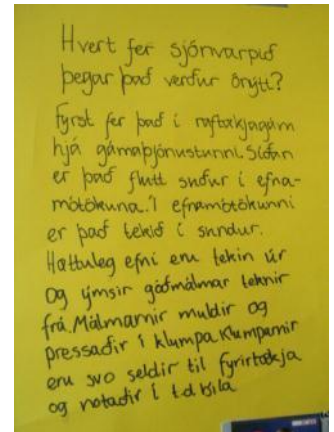 Hvert fer sjónvarpið
þegar það verður ónýtt?
Fyrst fer það í raftækjagám
hjá gámaþjónustunni. Síðan
er það flutt suður í efna-
mótökuna. Í efnamótökunni
er það tekið í sundur.
Hættuleg efni eru tekin úr
og ýmsir góðmálmar teknir
frá. Málmarnir muldir og
pressaðir í klumpa. Klumparnir
eru svo seldir til fyrirtækja
og notaðir í t.d. bíla